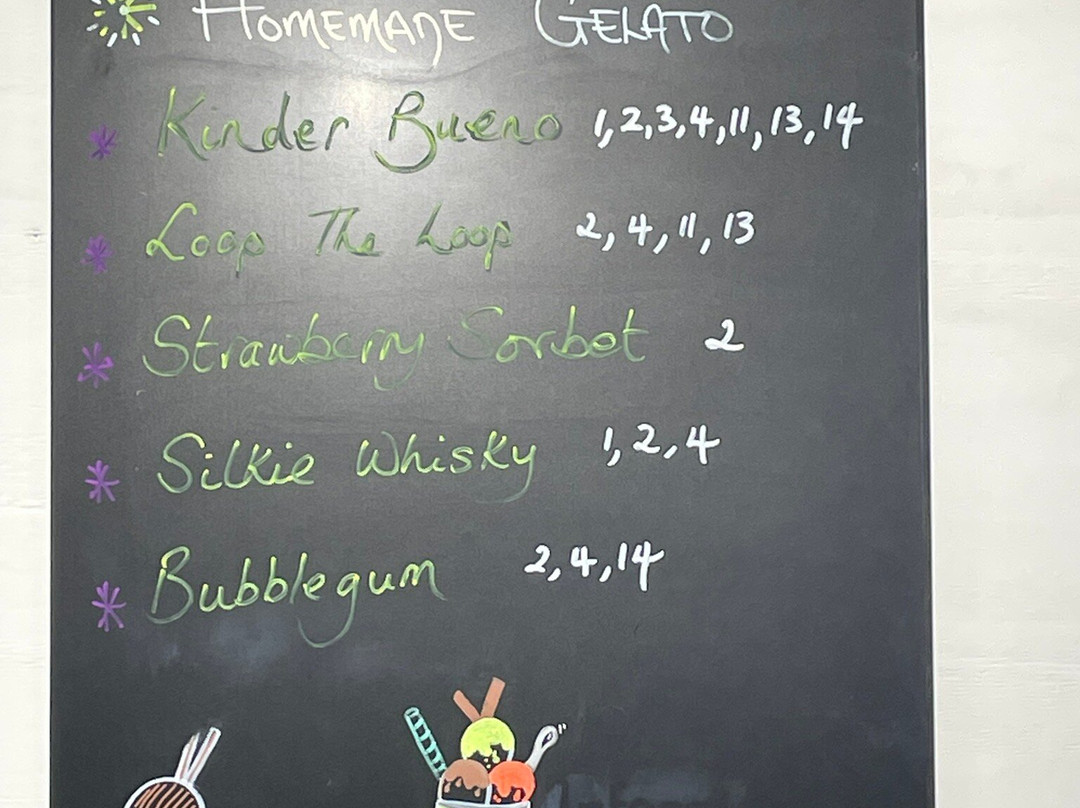 HOMEMADE GELATO
Kinder Bueno 1,2,3,4,11,13,14
Loop The Loop 2,4,11,13
Strawberry Sorbet 2
Silkie Whisky 1,2,4
Bubblegum 2,4,14